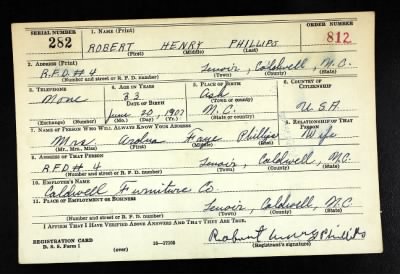 SERIAL NUMBER 1. NAME (Print) ORDER NUMBER
282 ROBERT HENRY PHILLIPS 812
(First) (Middle) (Last)
2. ADDRESS (Print)
R.F.D. # 4 Lenoir, Caldwell, N.C.
(Number and street or R. F. D. number) (Town) (County) (State)
3. TELEPHONE 4. AGE IN YEARS 5. PLACE OF BIRTH 6. COUNTRY OF CITIZENSHIP
None 33 Ash
DATE OF BIRTH (Town or county)
June 30, 1907 N.C. U.S.A.
(Exchange) (Number) (Mo.) (Day) (Yr.) (State or country)
7. NAME OF PERSON WHO WILL ALWAYS KNOW YOUR ADDRESS 8. RELATIONSHIP OF THAT PERSON
Mrs. Faye Phillips Wife
(Mr., Mrs., Miss) (First) (Middle) (Last)
9. ADDRESS OF THAT PERSON
R.F.D. # 4 Lenoir, Caldwell, N.C.
(Number and street or R. F. D. number) (Town) (County) (State)
10. EMPLOYER'S NAME
Caldwell Furniture Co.
11. PLACE OF EMPLOYMENT OR BUSINESS
Lenoir, Caldwell, N.C.
(Number and street or R. F. D. number) (Town) (County) (State)
I AFFIRM THAT I HAVE VERIFIED ABOVE ANSWERS AND THAT THEY ARE TRUE.
REGISTRATION CARD Robert Henry Phillips
D. S. S. Form 1 (over) 16—17105 (Registrant's signature)